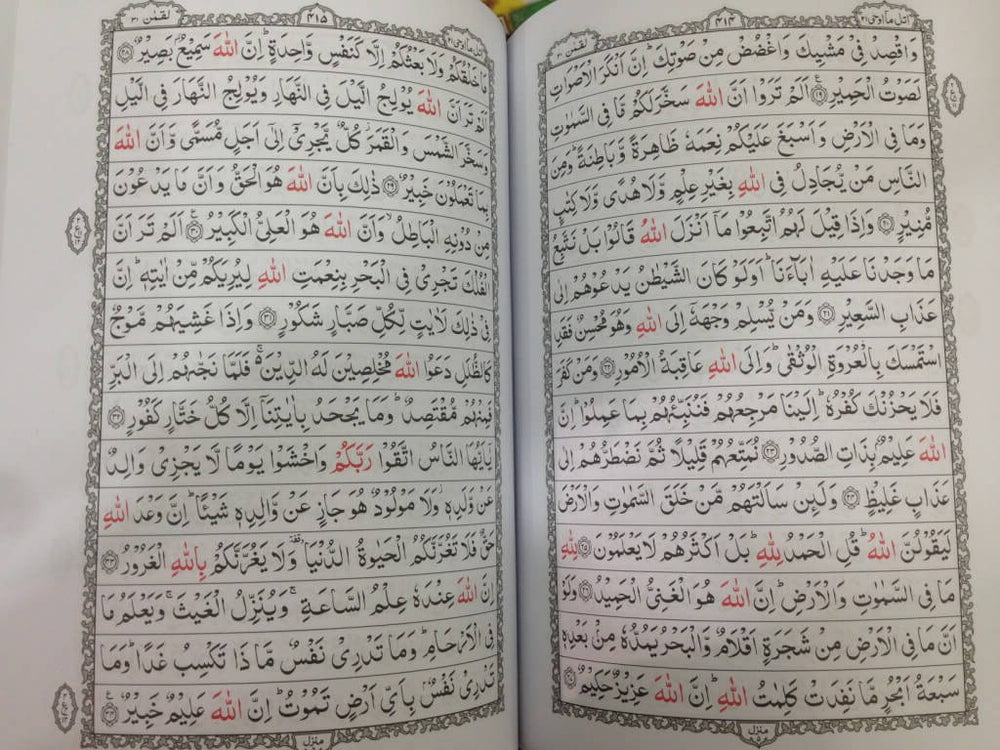 اتل مآ اوحی ۲۱
۴۱۴
لقمٰن ۳۱
وَاقْصِدْ فِیْ مَشْیِكَ وَاغْضُضْ مِنْ صَوْتِكَ ؕ اِنَّ اَنْكَرَ الْاَصْوَاتِ
لَصَوْتُ الْحَمِیْرِ ۟۱۹ اَلَمْ تَرَوْا اَنَّ اللّٰهَ سَخَّرَ لَكُمْ مَّا فِی السَّمٰوٰتِ
وَمَا فِی الْاَرْضِ وَاَسْبَغَ عَلَیْكُمْ نِعَمَهٗ ظَاهِرَةً وَّبَاطِنَةً ؕ وَمِنَ
النَّاسِ مَنْ یُّجَادِلُ فِی اللّٰهِ بِغَیْرِ عِلْمٍ وَّلَا هُدًی وَّلَا كِتٰبٍ
مُّنِیْرٍ ۲۰ وَاِذَا قِیْلَ لَهُمُ اتَّبِعُوْا مَاۤ اَنْزَلَ اللّٰهُ قَالُوْا بَلْ نَتَّبِعُ
مَا وَجَدْنَا عَلَیْهِ اٰبَآءَنَا ؕ اَوَلَوْ كَانَ الشَّیْطٰنُ یَدْعُوْهُمْ اِلٰی
عَذَابِ السَّعِیْرِ ۲۱ وَمَنْ یُّسْلِمْ وَجْهَهٗۤ اِلَی اللّٰهِ وَهُوَ مُحْسِنٌ فَقَدِ
اسْتَمْسَكَ بِالْعُرْوَةِ الْوُثْقٰی ؕ وَاِلَی اللّٰهِ عَاقِبَةُ الْاُمُوْرِ ۲۲ وَمَنْ كَفَرَ
فَلَا یَحْزُنْكَ كُفْرُهٗ ؕ اِلَیْنَا مَرْجِعُهُمْ فَنُنَبِّئُهُمْ بِمَا عَمِلُوْا ؕ اِنَّ
اللّٰهَ عَلِیْمٌۢ بِذَاتِ الصُّدُوْرِ ۲۳ نُمَتِّعُهُمْ قَلِیْلًا ثُمَّ نَضْطَرُّهُمْ اِلٰی
عَذَابٍ غَلِیْظٍ ۲۴ وَلَىِٕنْ سَاَلْتَهُمْ مَّنْ خَلَقَ السَّمٰوٰتِ وَالْاَرْضَ
لَیَقُوْلُنَّ اللّٰهُ ؕ قُلِ الْحَمْدُ لِلّٰهِ ؕ بَلْ اَكْثَرُهُمْ لَا یَعْلَمُوْنَ ۲۵ لِلّٰهِ
مَا فِی السَّمٰوٰتِ وَالْاَرْضِ ؕ اِنَّ اللّٰهَ هُوَ الْغَنِیُّ الْحَمِیْدُ ۲۶ وَلَوْ
اَنَّ مَا فِی الْاَرْضِ مِنْ شَجَرَةٍ اَقْلَامٌ وَّالْبَحْرُ یَمُدُّهٗ مِنْۢ بَعْدِهٖ
سَبْعَةُ اَبْحُرٍ مَّا نَفِدَتْ كَلِمٰتُ اللّٰهِ ؕ اِنَّ اللّٰهَ عَزِیْزٌ حَكِیْمٌ ۲۷
منزل ۵
اتل مآ اوحی ۲۱
۴۱۵
لقمٰن ۳۱
مَا خَلْقُكُمْ وَلَا بَعْثُكُمْ اِلَّا كَنَفْسٍ وَّاحِدَةٍ ؕ اِنَّ اللّٰهَ سَمِیْعٌۢ بَصِیْرٌ ۲۸
اَلَمْ تَرَ اَنَّ اللّٰهَ یُوْلِجُ الَّیْلَ فِی النَّهَارِ وَیُوْلِجُ النَّهَارَ فِی الَّیْلِ
وَسَخَّرَ الشَّمْسَ وَالْقَمَرَ ؗ كُلٌّ یَّجْرِیْۤ اِلٰۤی اَجَلٍ مُّسَمًّی وَّاَنَّ اللّٰهَ
بِمَا تَعْمَلُوْنَ خَبِیْرٌ ۲۹ ذٰلِكَ بِاَنَّ اللّٰهَ هُوَ الْحَقُّ وَاَنَّ مَا یَدْعُوْنَ
مِنْ دُوْنِهِ الْبَاطِلُ ۙ وَاَنَّ اللّٰهَ هُوَ الْعَلِیُّ الْكَبِیْرُ ۳۰ اَلَمْ تَرَ اَنَّ
الْفُلْكَ تَجْرِیْ فِی الْبَحْرِ بِنِعْمَتِ اللّٰهِ لِیُرِیَكُمْ مِّنْ اٰیٰتِهٖ ؕ اِنَّ
فِیْ ذٰلِكَ لَاٰیٰتٍ لِّكُلِّ صَبَّارٍ شَكُوْرٍ ۳۱ وَاِذَا غَشِیَهُمْ مَّوْجٌ
كَالظُّلَلِ دَعَوُا اللّٰهَ مُخْلِصِیْنَ لَهُ الدِّیْنَ ۚ فَلَمَّا نَجّٰىهُمْ اِلَی الْبَرِّ
فَمِنْهُمْ مُّقْتَصِدٌ ؕ وَمَا یَجْحَدُ بِاٰیٰتِنَاۤ اِلَّا كُلُّ خَتَّارٍ كَفُوْرٍ ۳۲
یٰۤاَیُّهَا النَّاسُ اتَّقُوْا رَبَّكُمْ وَاخْشَوْا یَوْمًا لَّا یَجْزِیْ وَالِدٌ
عَنْ وَّلَدِهٖ ؗ وَلَا مَوْلُوْدٌ هُوَ جَازٍ عَنْ وَّالِدِهٖ شَیْـًٔا ؕ اِنَّ وَعْدَ اللّٰهِ
حَقٌّ فَلَا تَغُرَّنَّكُمُ الْحَیٰوةُ الدُّنْیَا ۥ وَلَا یَغُرَّنَّكُمْ بِاللّٰهِ الْغَرُوْرُ ۳۳
اِنَّ اللّٰهَ عِنْدَهٗ عِلْمُ السَّاعَةِ ۚ وَیُنَزِّلُ الْغَیْثَ ۚ وَیَعْلَمُ مَا
فِی الْاَرْحَامِ ؕ وَمَا تَدْرِیْ نَفْسٌ مَّا ذَا تَكْسِبُ غَدًا ؕ وَمَا
تَدْرِیْ نَفْسٌۢ بِاَیِّ اَرْضٍ تَمُوْتُ ؕ اِنَّ اللّٰهَ عَلِیْمٌ خَبِیْرٌ ۳۴
منزل ۵